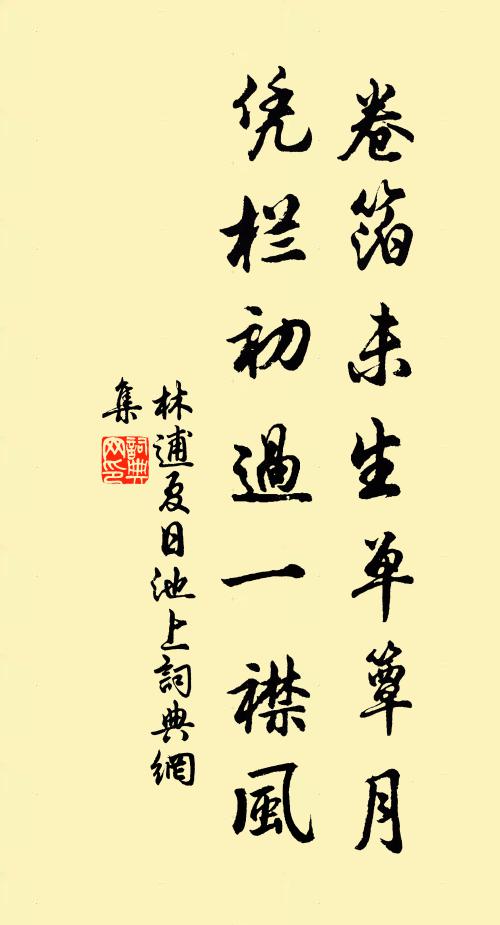 卷箔未生单簟月
凭栏初過一襟風
林逋夏日池上詞典網
集
詞典網印